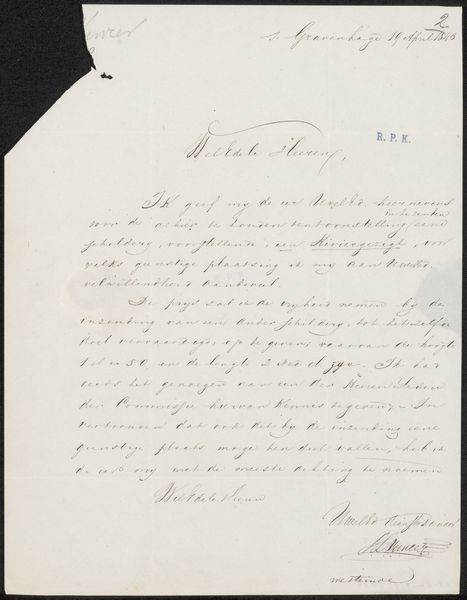 2
s Gravenhage 19 April 1845
R. P. K.
WelEdele Heeren,
Ik geef my de eer UwelEd. hiernevens
voor de alhier te houden tentoonstelling in te zenden
schildery, voorstellende, een Riviergezigt, voor
welks gunstige plaatsing ik my aan UwelEd.
welwillendheid aanbeveel.
De prys zal ik de vryheid nemen by de
inzending van een ander schildery, tot hetzelfde
doel vervaardigd, op te geven, waarvan de hoogte
1 el 50, en de lengte 2 Ned. el zyn. Ik had
reeds het genoegen van een der Heeren Leden
der Commissie hiervan kennis te geven, In
vertrouwen dat ook dit by de inzending eene
gunstige plaats moge ten deel vallen, heb ik
de eer my met de meeste achting te noemen
WelEdele Heeren
UwelEd
westeinde